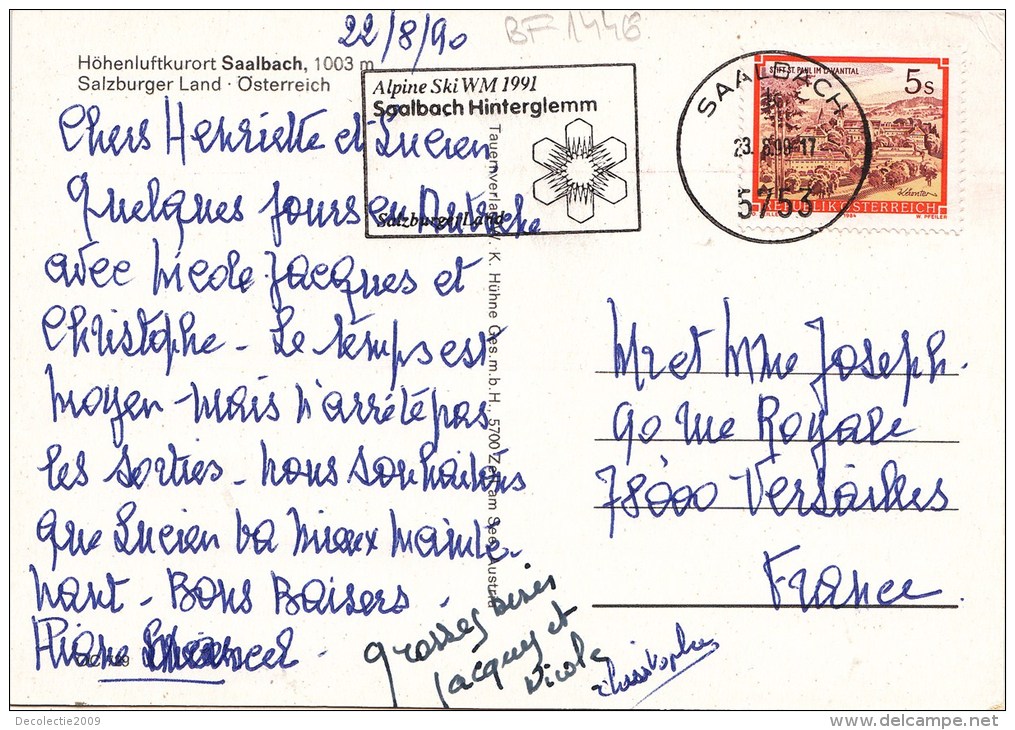 22/8/90
BF 1446
Höhenluftkurort Saalbach, 1003 m
Salzburger Land · Österreich
Alpine Ski WM 1991
Saalbach Hinterglemm
Salzburger Land
SAALBACH
23.8.90-17
5753
STIFT ST. PAUL IM LAVANTTAL
5 S
REPUBLIK ÖSTERREICH
1984 W. PFEILER
Chers Henriette et Lucien
Quelques jours en Autriche
avec Nicole Jacques et
Christophe - Le temps est
moyen - mais n'arrête pas
les sorties - nous souhaitons
que Lucien va mieux mainte-
nant - Bons Baisers -
Tauernverlag W. K. Hühne Ges.m.b.H., 5700 Zell am See, Austria
Mr et Mme Joseph.
90 rue Royale
78000 Versailles
France.
grosses bises
Jacques et
Nicole
Christophe
Decolectie2009
www.delcampe.net